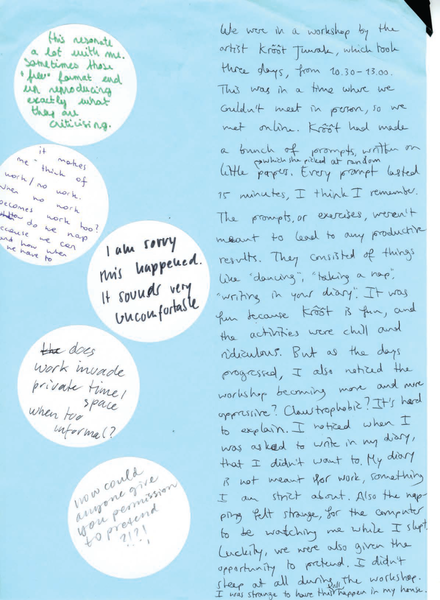 this resonate
a lot with me.
Sometimes those
"free" format end
up reproducing
exactly what
they are
criticising.
it makes
me think of
work/no work.
when no work
becomes work too?
do we nap
because we can
and how when
we have to
I am sorry
this happened.
It sounds very
uncomfortable
the does
work invade
private time/
space
when too
informal?
how could
anyone give
you permission
to pretend
?!?!
We were in a workshop by the
artist Krõõt Juurak, which took
three days, from 10.30-15.00.
This was in a time where we
couldn't meet in person, so we
met online. Krõõt had made
a bunch of prompts, written on
which she picked at random
little papers. Every prompt lasted
15 minutes, I think I remember.
The prompts, or exercises, weren't
meant to lead to any productive
results. They consisted of things
like "dancing", "taking a nap",
"writing in your diary". It was
fun because Krõõt is fun, and
the activities were chill and
ridiculous. But as the days
progressed, I also noticed the
workshop becoming more and more
oppressive? Claustrophobic? It's hard
to explain. I noticed when I
was asked to write in my diary,
that I didn't want to. My diary
is not meant for work, something
I am strict about. Also the nap-
ping felt strange, for the computer
to be watching me while I slept.
Luckily, we were also given the
opportunity to pretend. I didn't
sleep at all during the workshop.
I was strange to have this all happen in my house.